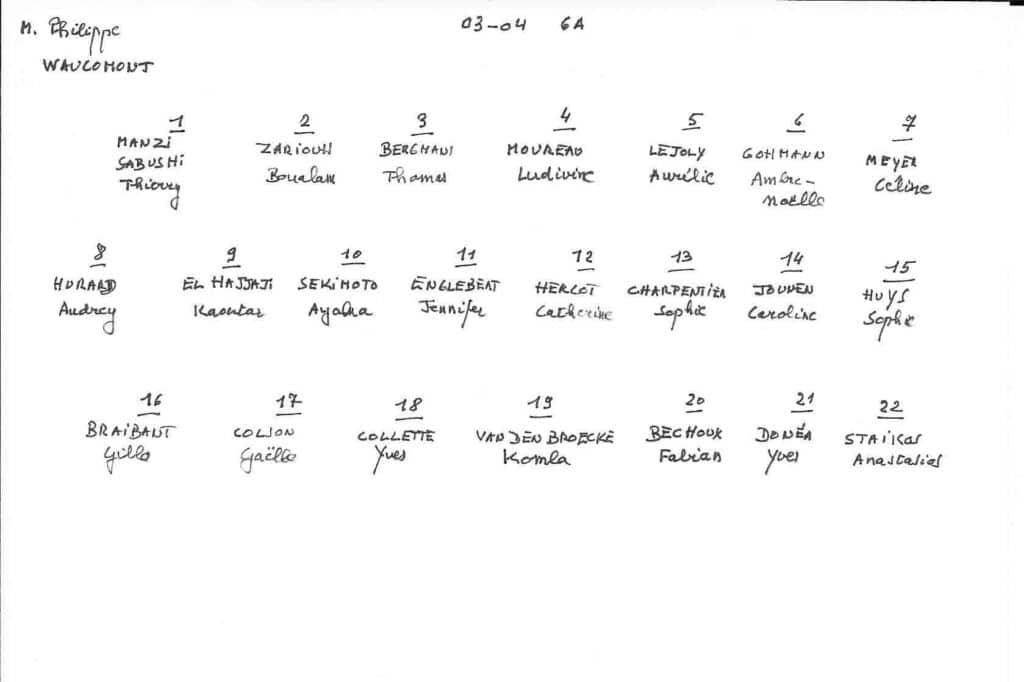 M. Philippe
WAUCOMONT
03-04 6A
1 2 3 4 5 6 7
MANZI ZARIOUH BERGHAUS MOUREAU LEJOLY GOHMANN MEYER
SABUSHI Boualam Thomas Ludivine Aurélie Ambre- Céline
Thierry Noëlle
8 9 10 11 12 13 14 15
HURARD EL HAJJAJI SEKIMOTO ENGLEBERT HERCOT CHARPENTIER JOUVEN HUYS
Audrey Kaoutar Ayaka Jennifer Catherine Sophie Caroline Sophie
16 17 18 19 20 21 22
BRAIBANT COLSON COLLETTE VAN DEN BROECKE BECHOUX DONÉA STAIKOS
Gilles Gaëlle Yves Komla Fabian Yves Anastasios